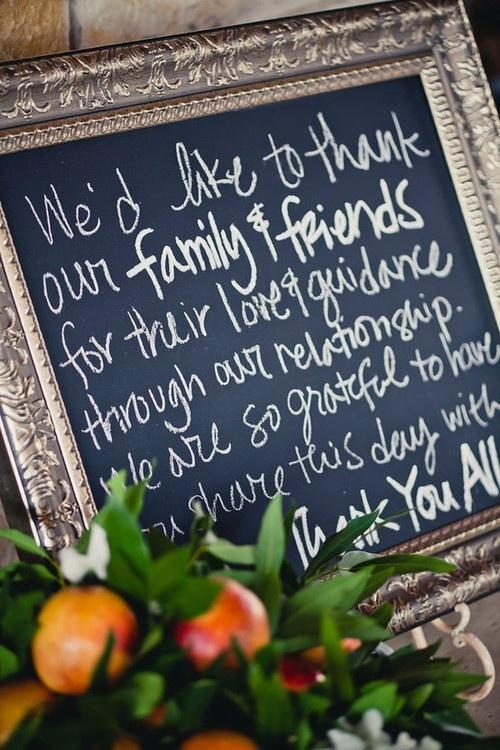 We'd like to thank
our family & friends
for their love & guidance
through our relationship.
We are so grateful to have
you share this day with
Thank You All